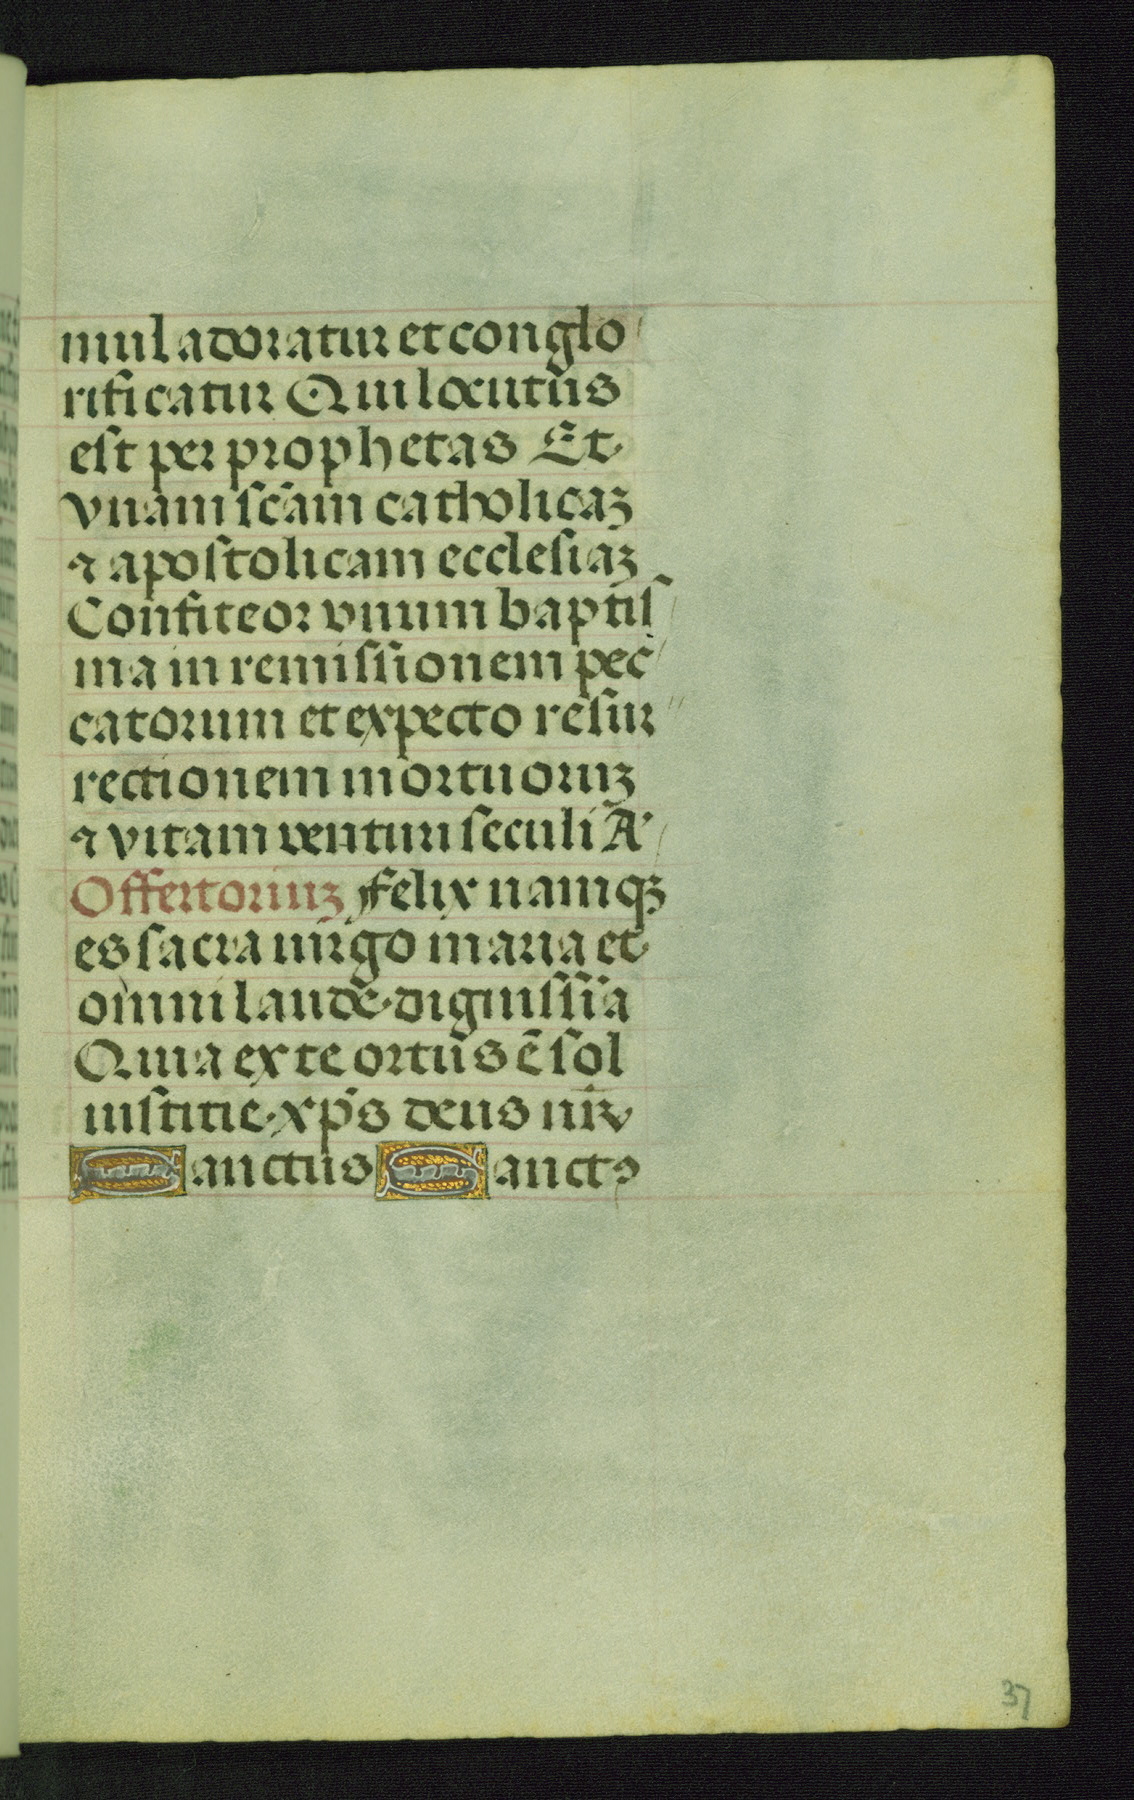 mul adoratur et conglo
rificatur Qui locutus
est per prophetas Et
vnam scām catholicaꝫ
⁊ apostolicam ecclesiaꝫ
Confiteor vnum baptis
ma in remissionem pec
catorum et expecto resur
rectionem mortuoruꝫ
⁊ vitam venturi seculi A
Offertoriuꝫ Felix namqꝫ
es sacra uirgo maria et
omni laude dignissīa
Quia ex te ortus ē sol
iustitie xp̄s deus nr̄
Sanctus Sanctꝰ
37